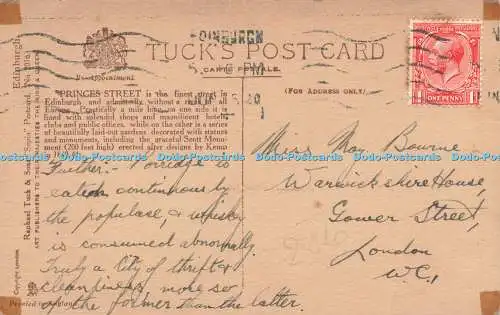 EDINBURGH
TUCK'S POST CARD
CARTE POSTALE
By Appointment
(FOR ADDRESS ONLY)
POSTAGE REVENUE
ONE PENNY
Edinburgh.
Raphael Tuck & Sons' "Sepia" Postcard
ART PUBLISHERS TO THEIR MAJESTIES THE KING & QUEEN
Copyright London.
Printed in England.
PRINCES STREET is the finest street in
Edinburgh and admittedly without a rival in all
Europe. Practically a mile long, on one side it is
lined with splendid shops and magnificent hotels,
clubs and public offices, while on the other is a series
of beautifully laid-out gardens, decorated with statues
and monuments, including the graceful Scott Monument
(200 feet high) erected after designs by Kemp
Further :- Porridge is
eaten continuously by
the populase, & whisky
is consumed abnormally.
Truly a City of thrift &
cleanliness, more so
of the former than the latter.
Miss May Bourne
Warwickshire House,
Gower Street,
London
W.C.1
Dodo-Postcards Dodo-Postcards Dodo-Postcards Dodo-Postcards Dodo-Postcards